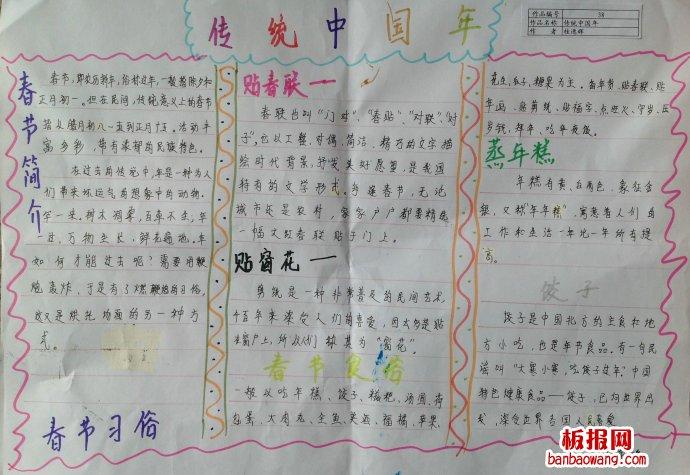 传统中国年
作品编号 38
作品名称 传统中国年
作者
春节简介
春节,即农历新年,俗称过年,一般指除夕和
正月初一。但在民间,传统意义上的春节
是指从腊月初八一直到正月十五。活动丰
富多彩,带有浓郁的民族特色。
在过去的传统中,年是一种为人
们带来坏运气的想象中的动物。
年一来,树木凋零,百草不生;年
一过,万物生长,鲜花遍地。年
如何才能过去呢?需要用鞭
炮轰炸,于是有了燃鞭炮的习俗,
这又是烘托场面的另一种方
式。
春节习俗
贴春联一
春联也叫“门对”、“春贴”、“对联”、“对
子”,它以工整、对偶、简洁、精巧的文字描
绘时代背景,抒发美好愿望,是我国
特有的文学形式。每逢春节,无论
城市还是农村,家家户户都要精选
一幅大红春联贴于门上。
贴窗花一
剪纸是一种非常普及的民间艺术,
千百年来深受人们的喜爱,因大多是贴
在窗户上,所以人们称其为“窗花”。
春节食俗
一般以吃年糕、饺子、糍粑、汤圆、荷
包蛋、大肉丸、全鱼、美酒、福橘、苹果、
花生、瓜子、糖果为主。备年货、贴春联、贴
年画、贴剪纸、贴福字、点炮火、守岁、压
岁钱、拜年、吃年夜饭。
蒸年糕
年糕有黄、白两色,象征金
银,又称“年年糕”,寓意着人们的
工作和生活一年比一年所有提
高。
饺子
饺子是中国北方的主食和地
方小吃,也是年节食品。有一句民
谣叫“大寒小寒,吃饺子过年。”中国
特色健康食品——饺子,已向世界出
发,深受世界各国人民喜爱
板报网
banbaowang.com